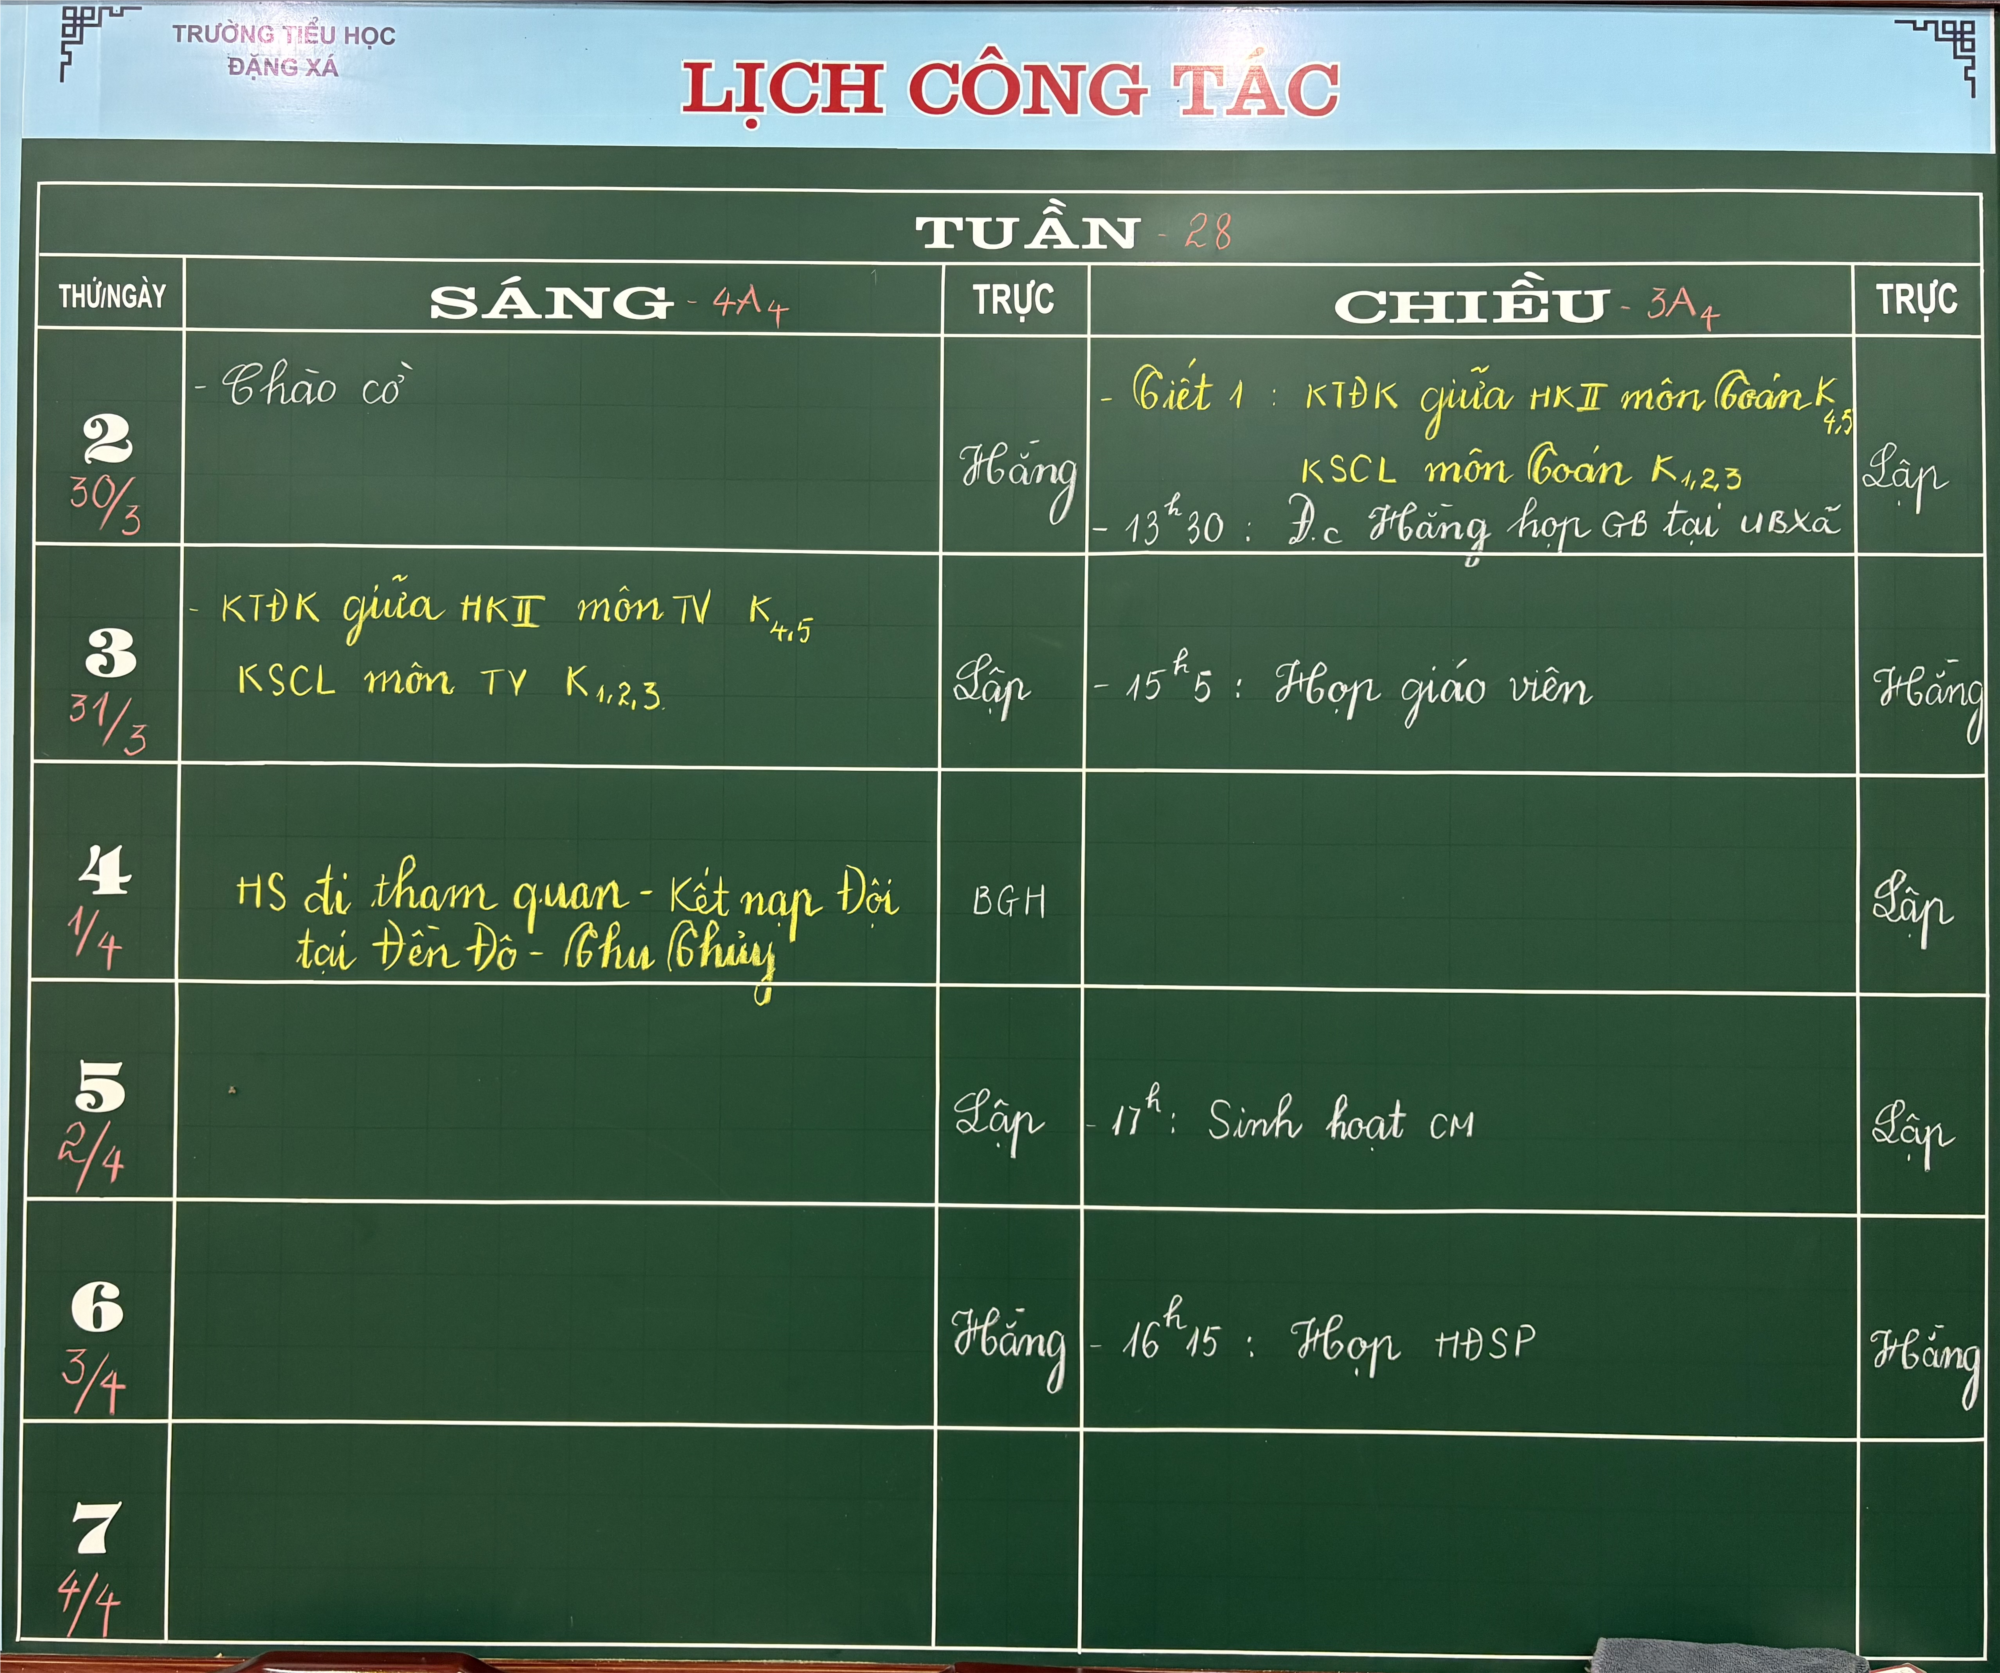 TRƯỜNG TIỂU HỌC
ĐẶNG XÁ
LỊCH CÔNG TÁC
TUẦN - 28
THỨ/NGÀY
SÁNG - 4A4
TRỰC
CHIỀU - 3A4
TRỰC
2
30/3
- Chào cờ
Hằng
- Tiết 1 : KTĐK giữa HKII môn Toán K4,5
KSCL môn Toán K1,2,3
- 13h30 : Đ.c Hằng họp GB tại UBXã
Lập
3
31/3
- KTĐK giữa HKII môn TV K4,5
KSCL môn TV K1,2,3.
Lập
- 15h5 : Họp giáo viên
Hằng
4
1/4
HS đi tham quan - Kết nạp Đội
tại Đền Đô - Thu Thủy
BGH
Lập
5
2/4
Lập
- 17h : Sinh hoạt CM
Lập
6
3/4
Hằng
- 16h15 : Họp HĐSP
Hằng
7
4/4